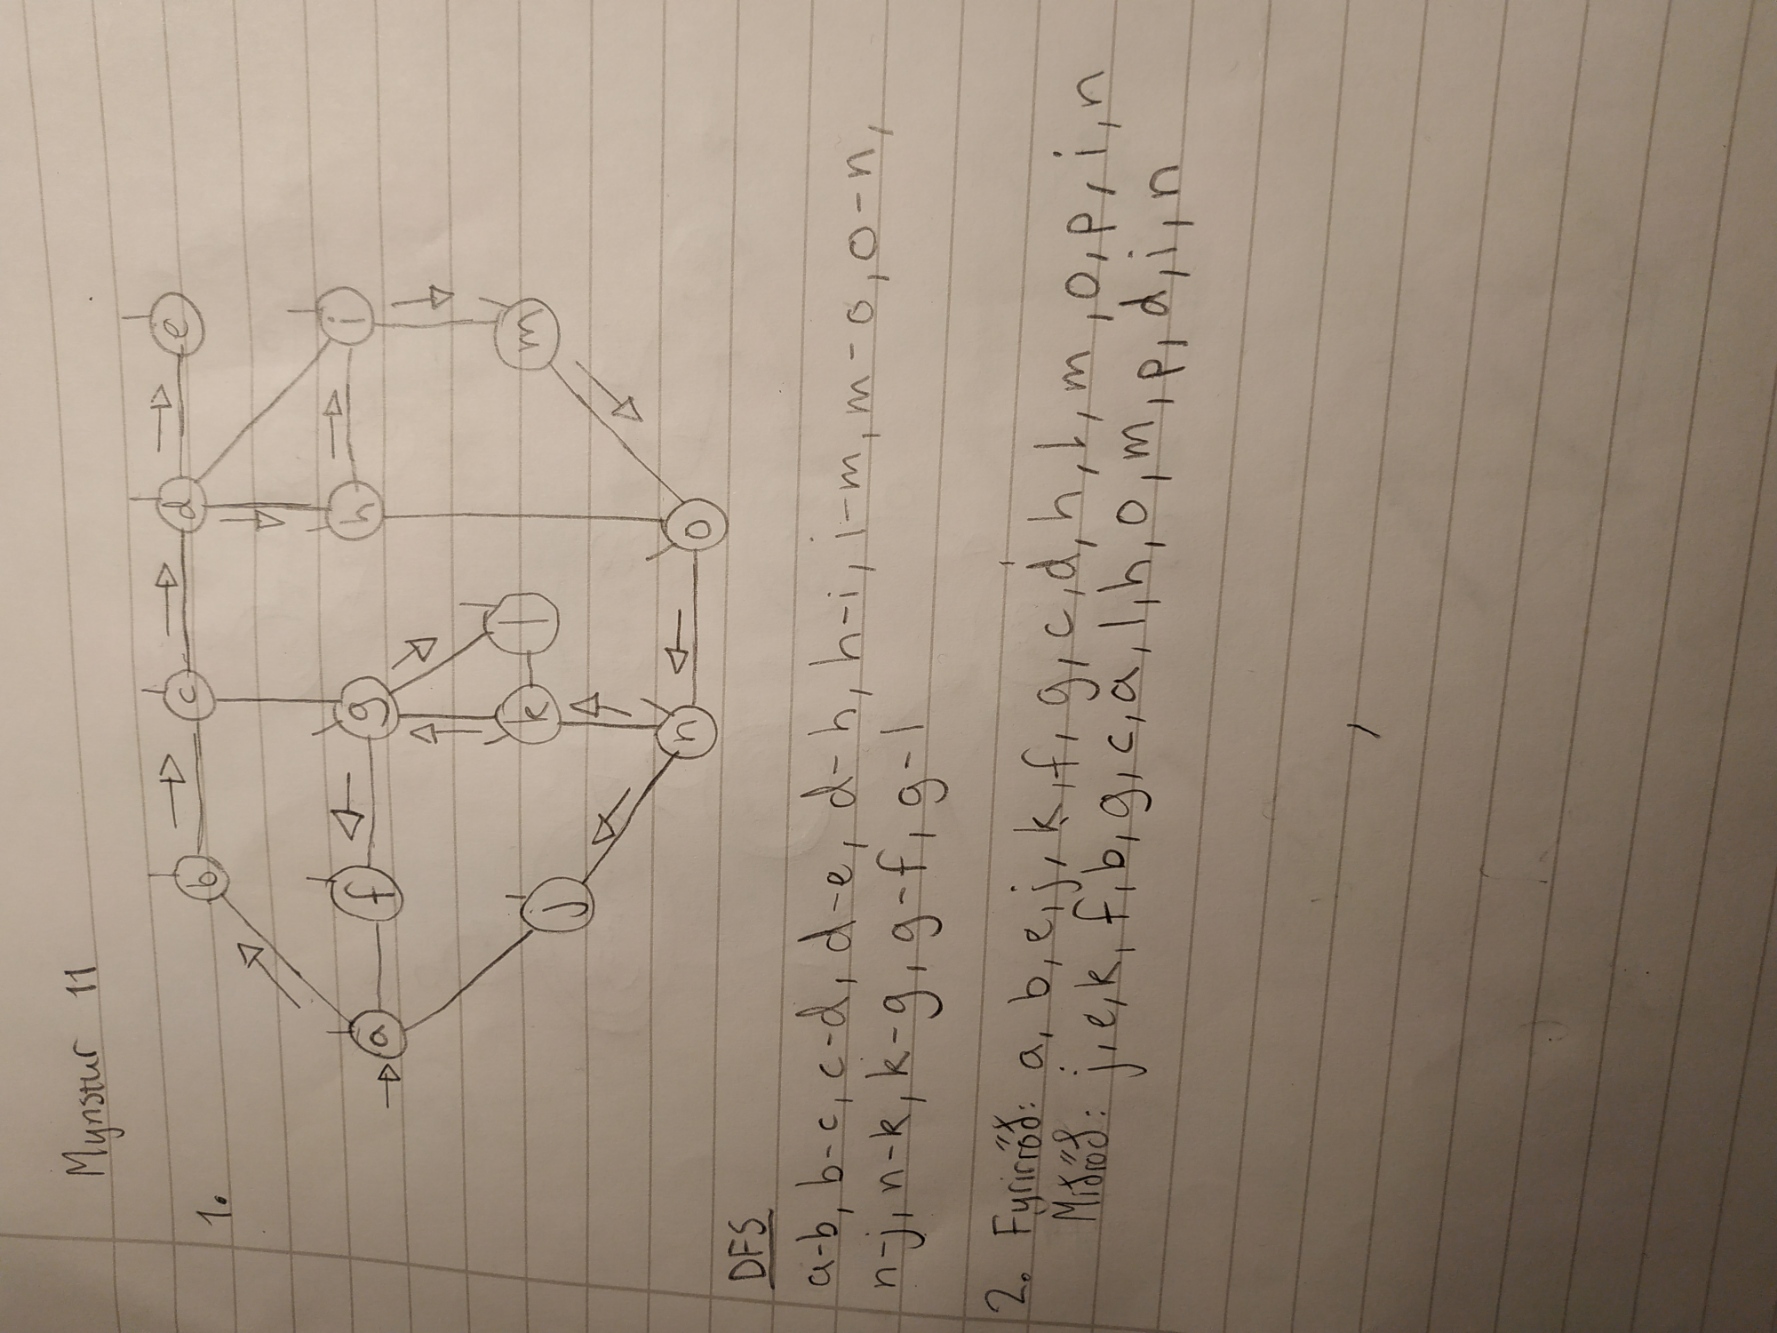 Mynstur 11
1.
b c d e
a f g h i
j k l m
n o
DFS
a-b, b-c, c-d, d-e, d-h, h-i, i-m, m-o, o-n,
n-j, n-k, k-g, g-f, g-l
2. Fyrirröð: a, b, e, j, k, f, g, c, d, h, l, m, o, p, i, n
Miðröð: j, e, k, f, b, g, c, a, l, h, o, m, p, d, i, n